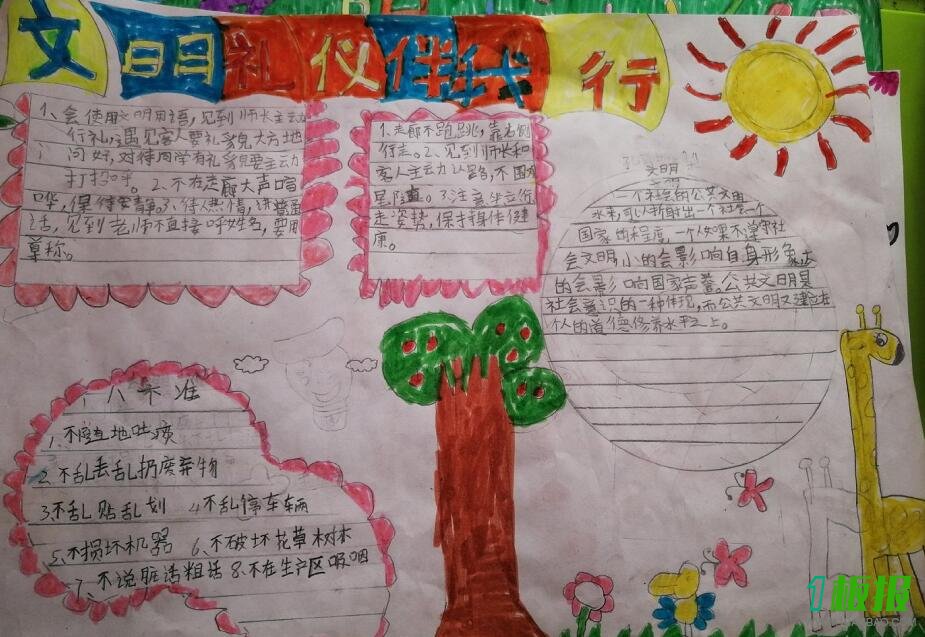 文明礼仪伴我行
1、会使用文明用语,见到师长主动
行礼,遇见客人要礼貌大方地
问好,对待同学有礼貌要主动
打招呼。2、不在走廊大声喧
哗,保持安静。3、待人热情,讲普通
话,见到老师不直接呼姓名,要用
尊称。
1、走廊不跑跳,靠右侧
行走。2、见到师长和
客人主动让路,不围观
尾随。3、注意坐立行
走姿势,保持身体健
康。
文明
一个社会的公共文明
水平,可以折射出一个社会一个
国家的程度,一个人如果不遵守社
会文明,小的会影响自身形象,大
的会影响国家声誉。公共文明是
社会意识的一种体现,而公共文明又建立在
个人的道德修养水平之上。
八不准
1、不随地吐痰
2、不乱丢乱扔废弃物
3、不乱贴乱划 4、不乱停车辆
5、不损坏机器 6、不破坏花草树木
7、不说脏话粗话 8、不在生产区吸咽
1板报